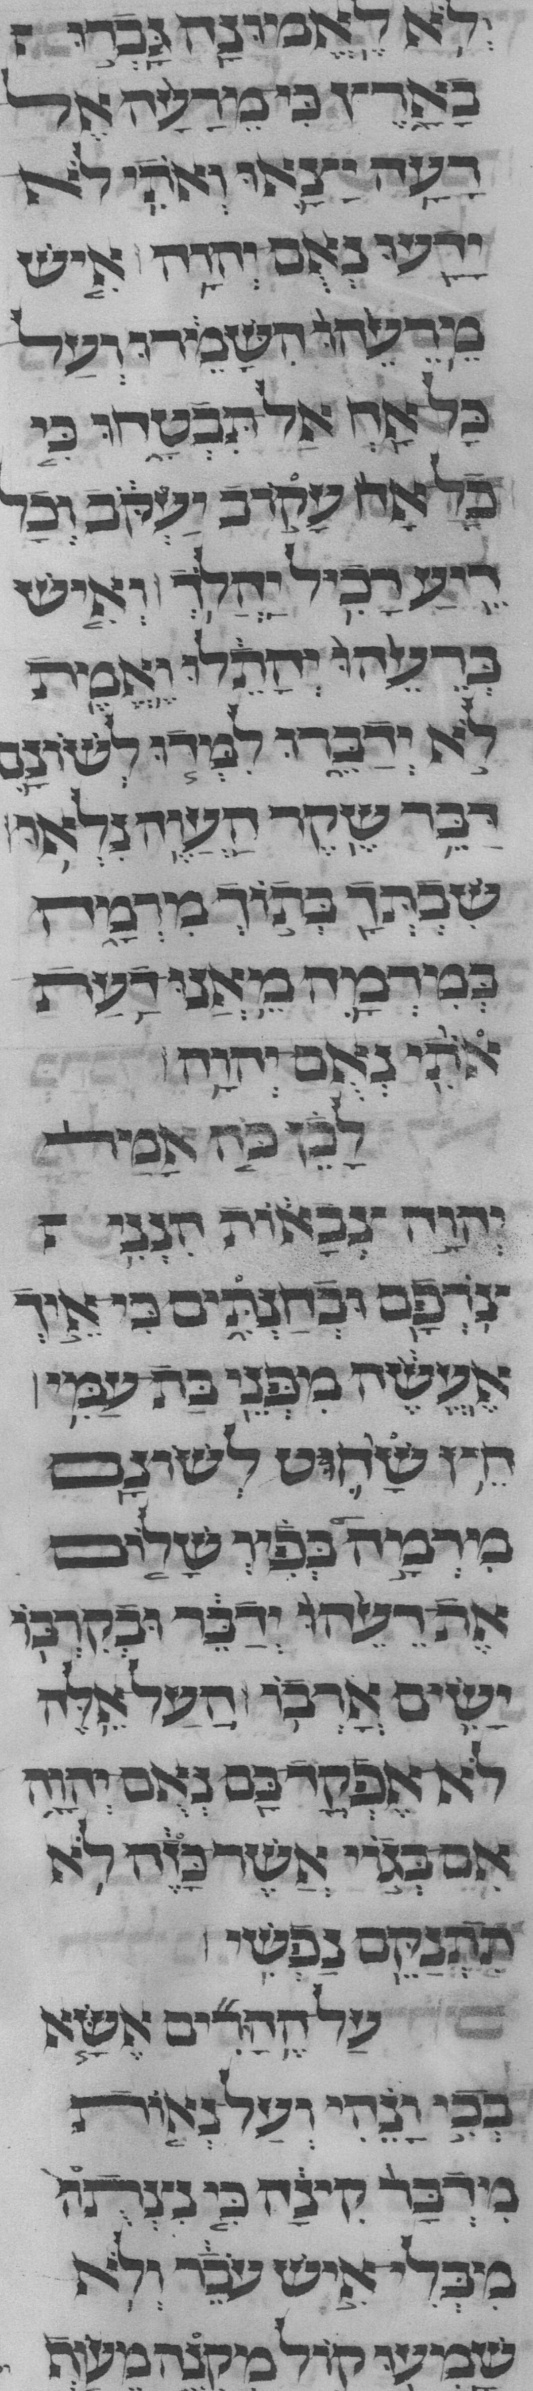 לֹא לֶאֱמוּנָה גָּבְרוּ
בָאָרֶץ כִּי מֵרָעָה אֶל
רָעָה יָצָאוּ וְאֹתִי לֹא
יָדָעוּ נְאֻם יְהוָה אִישׁ
מֵרֵעֵהוּ הִשָּׁמֵרוּ וְעַל
כָּל אָח אַל תִּבְטָחוּ כִּי
כָל אָח עָקוֹב יַעְקֹב וְכָל
רֵיעַ רָכִיל יַהֲלֹךְ וְאִישׁ
בְּרֵעֵהוּ יְהָתֵלּוּ וֶאֱמֶת
לֹא יְדַבֵּרוּ לִמְּדוּ לְשׁוֹנָם
דַּבֵּר שֶׁקֶר הַעֲוֵה נִלְאוּ
שִׁבְתְּךָ בְּתוֹךְ מִרְמָה
בְּמִרְמָה מֵאֲנוּ דַעַת
אֹתִי נְאֻם יְהוָה
לָכֵן כֹּה אָמַר
יְהוָה צְבָאוֹת הִנְנִי
צֹרְפָם וּבְחַנְתִּים כִּי אֵיךְ
אֶעֱשֶׂה מִפְּנֵי בַּת עַמִּי
חֵץ שָׁחוּט לְשׁוֹנָם
מִרְמָה בְּפִיו שָׁלוֹם
אֶת רֵעֵהוּ יְדַבֵּר וּבְקִרְבּוֹ
יָשִׂים אָרְבּוֹ הַעַל אֵלֶּה
לֹא אֶפְקָד בָּם נְאֻם יְהוָה
אִם בְּגוֹי אֲשֶׁר כָּזֶה לֹא
תִתְנַקֵּם נַפְשִׁי
עַל הֶהָרִים אֶשָּׂא
בְכִי וָנֶהִי וְעַל נְאוֹת
מִדְבָּר קִינָה כִּי נִצְּתוּ
מִבְּלִי אִישׁ עֹבֵר וְלֹא
שָׁמְעוּ קוֹל מִקְנֶה מֵעוֹף